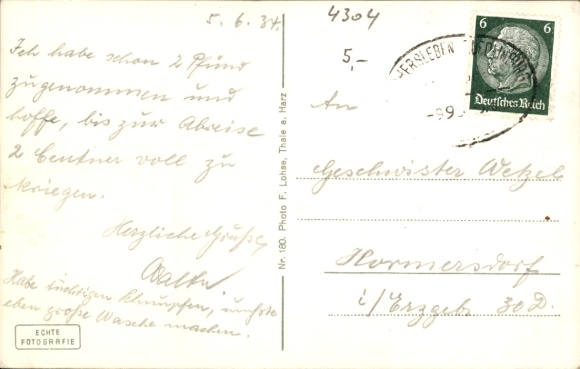 5. 6. 34.
Ich habe schon 2 Pfund
zugenommen und
hoffe, bis zur Abreise
2 Centner voll zu
kriegen.
Herzliche Grüße
Walter.
Habe tüchtigen Schnupfen, mußte
eben große Wäsche machen.
ECHTE
FOTOGRAFIE
Nr. 180. Photo F. Lohse, Thale a. Harz
4304
5,-
6 6
Deutsches Reich
An
Geschwister Wetzel
Hormersdorf
i/Erzgeb. 30 D.